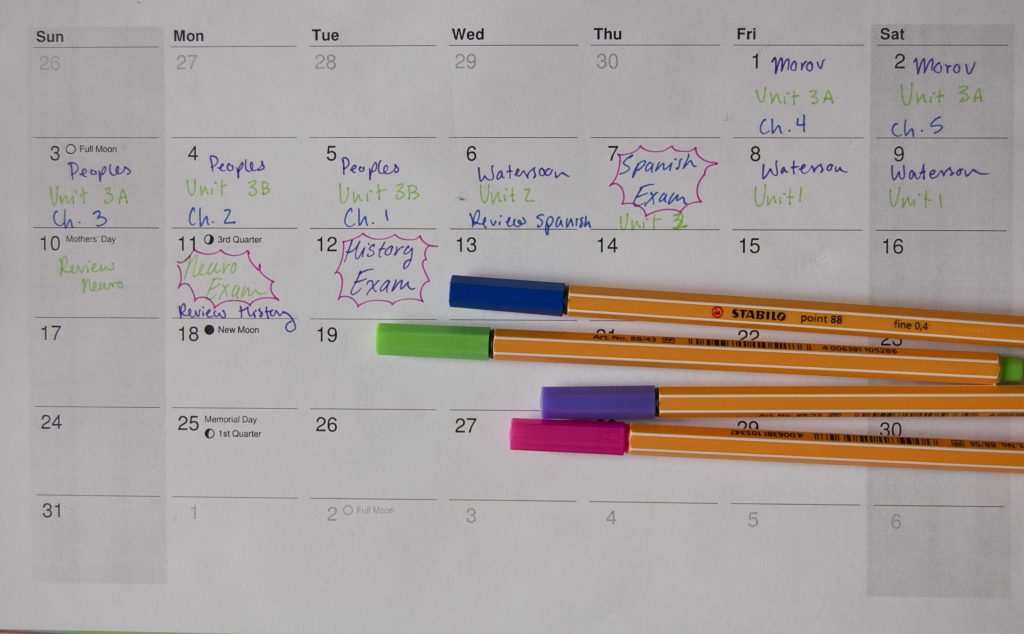 Sun Mon Tue Wed Thu Fri Sat
26 27 28 29 30 1 Morov 2 Morov
Unit 3A Unit 3A
Ch. 4 Ch. 5
3 Full Moon 4 5 6 7 8 9
Peoples Peoples Peoples Watersoon Spanish Watersoon Watersoon
Unit 3A Unit 3B Unit 3B Unit 2 Exam Unit 1 Unit 1
Ch. 3 Ch. 2 Ch. 1 Review Spanish Unit 2
10 Mothers' Day 11 3rd Quarter 12 13 14 15 16
Review Neuro History
Neuro Exam Exam
Review History
STABILO point 88 fine 0,4
17 18 New Moon 19 21 22 23
Art. No. 88/43 4 006381 105286
24 25 Memorial Day 26 27 29 30
1st Quarter
4 006381 105347 Art. No. 88/56
31 1 2 Full Moon 3 4 5 6